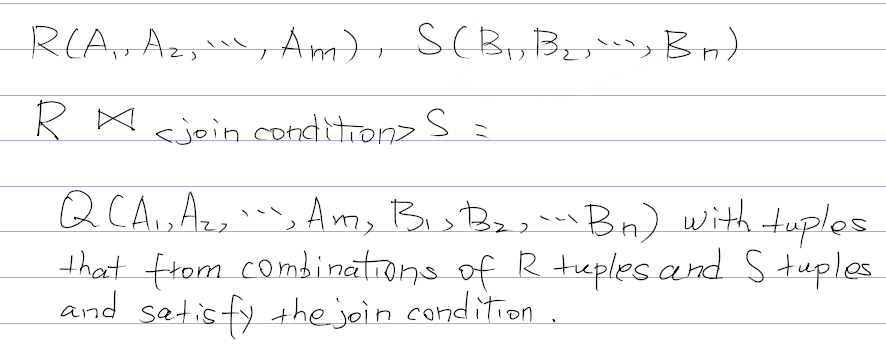 R(A₁, A₂, ..., Am), S(B₁, B₂, ..., Bn)
R ⋈ <join condition> S =
Q(A₁, A₂, ..., Am, B₁, B₂, ... Bn) with tuples
that from combinations of R tuples and S tuples
and satisfy the join condition.